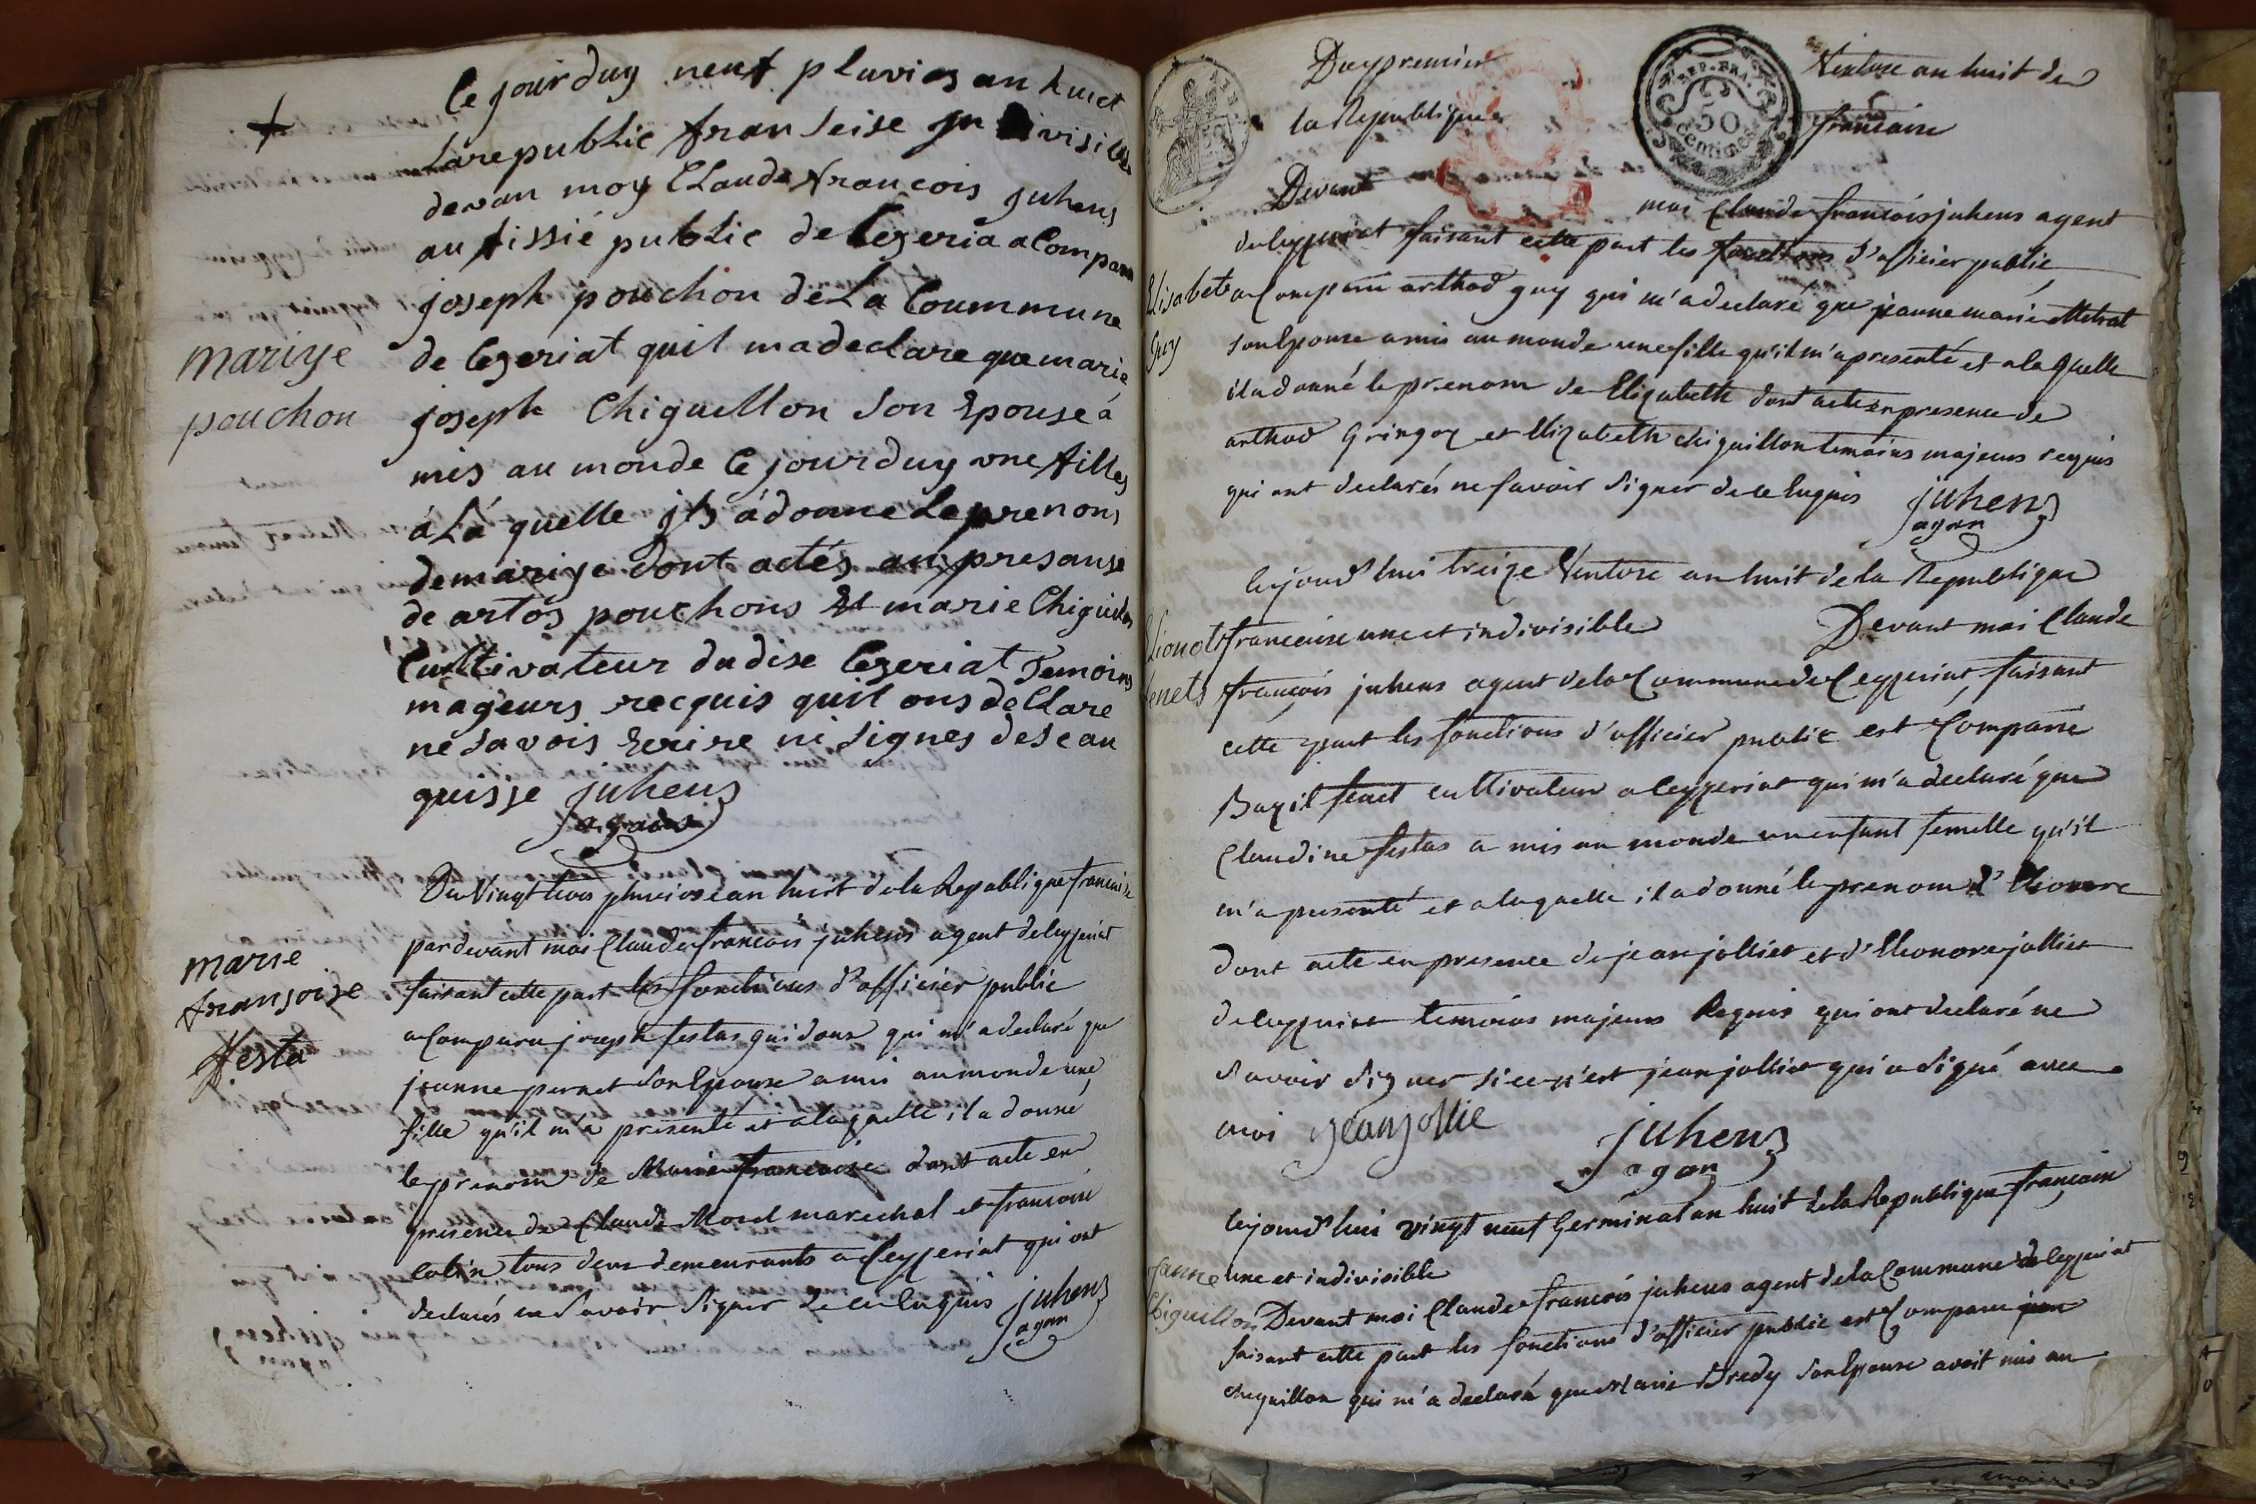 Ce jourduy neuf pluvios an huict
La republic franseise jn divisible
devan moy Claude francois juhens
au fissié public de Ceseria a Compara
joseph pouchon de La Coummune
de Ceseriat quil ma declare que marie
joseph Chiguellon son Epouse á
mis au monde Ce jourduy vne filles
á La quelle jls á donne Le prenons
de mariye dont actés an presanse
de artos pouchons Et marie Chiguillon
Cultivateur du dise Ceseriat Temoins
mageurs recquis quil ons de Clare
ne savois Ecrire ni signes dese an
quisse juhens
agans
mariye
pouchon
Du Vingt trois pluviose an huit de la Republique francaise
par devant moi Claude francois juhens agent de leyzeriat
faisant cette part les fonctions d'officier public
a Comparu joseph festas guidoux qui m'a declaré que
jeanne pernet son Epouse a mis au monde une
fille qu'il m'a presenté et a laquelle il a donné
le prenom de Marie francoise dont acte en
presence de Claude Morel marechal et francois
Colin tous deux demeurants a Ceyzeriat qui ont
declarés ne savoir signer de ce Enquis juhens
agan
marie
fransoise
festa
Duy premier Ventose an huit de
la Republique francaise
Devant moi Claude francois juhens agent
de leyzeriat faisant cette part les fonctions d'officier public
a Comparu arthod guy qui m'a declaré que jeanne marie Metrat
son Epouse a mis au monde une fille qu'il m'a presenté et a la quelle
il a donné le prenom de Elizabeth dont acte en presence de
arthod Gringoz et Elizabeth chiguillon temoins majeurs requis
qui ont declarés ne savoir signer de ce Enquis juhens
agan
Elisabete
guy
Cejourd'hui treize Ventose an huit de la Republique
francaise une et indivisible Devant moi Claude
francois juhens agent de la Commune de Ceyzeriat faisant
cette part les fonctions d'officier public est Comparu
Bazil fenet cultivateur a Ceyzeriat qui m'a declaré que
Claudine festas a mis au monde un enfant femelle qu'il
m'a presenté et a laquelle il a donné le prenom d'Eleonore
dont acte en presence de jean jolliet et d'Eleonore jolliet
de Ceyzeriat temoins majeurs Requis qui ont declaré ne
savoir signer si ce n'est jean jolliet qui a signé avec
moi jean jollie juhens
agan
fenets
Cejourd'hui vingt neuf Germinal an huit de la Republique francaise
une et indivisible
Devant moi Claude francois juhens agent de la Commune de Ceyzeriat
faisant cette part les fonctions d'officier public est Comparu jean
chiguillon qui m'a declaré que Marie Bredy son Epouse avoit mis au
Chiguillon
REP. FRA.
50
Centimes